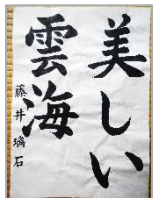 美しい
雲海
藤井璃石